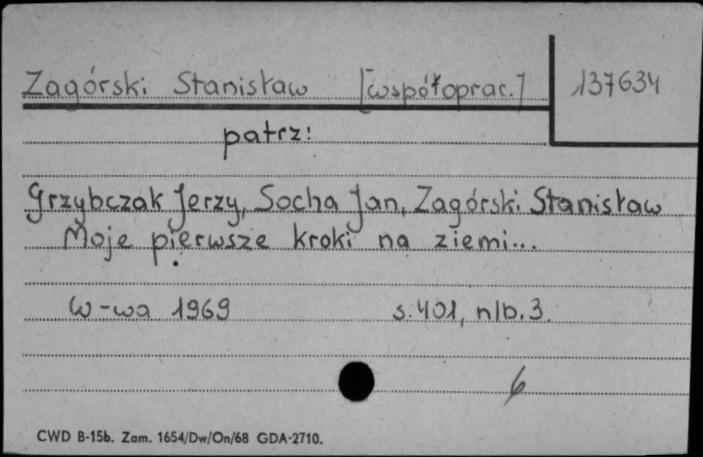 Zagórski Stanisław [współoprac.] 137634
patrz:
Grzybczak Jerzy, Socha Jan, Zagórski Stanisław
Moje pierwsze kroki na ziemi...
W-wa 1969 s. 401, nlb. 3.
6
CWD B-15b. Zam. 1654/Dw/On/68 GDA-2710.